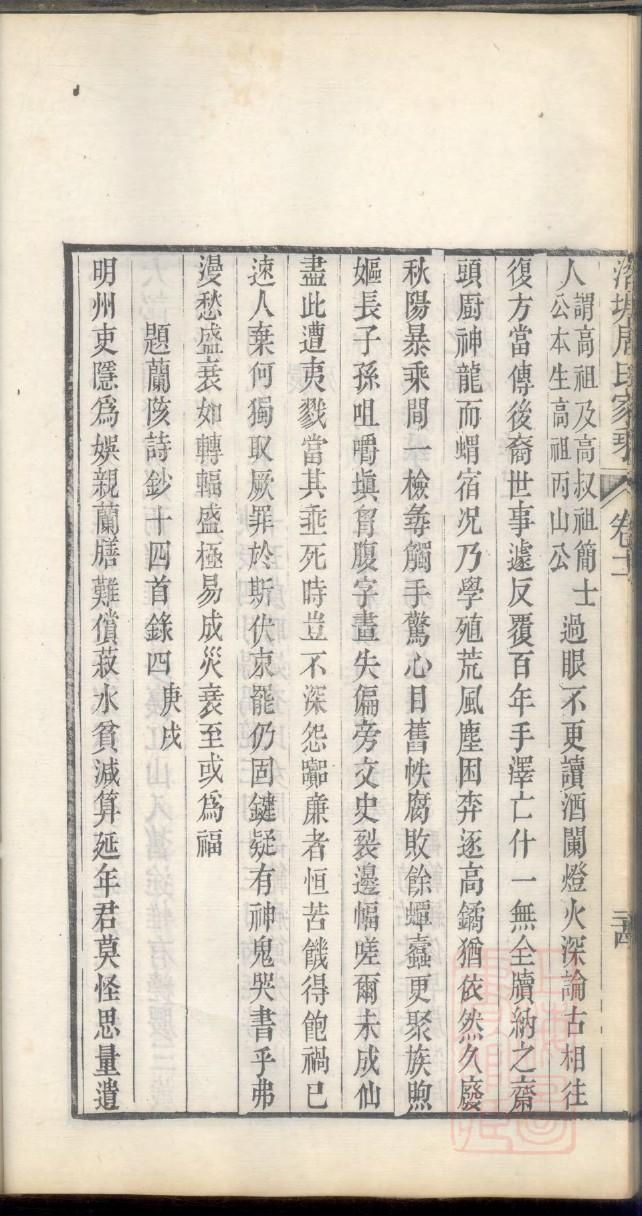 周氏家
卷十二
人謂高祖及高叔祖簡士公本生高祖丙山公過眼不更讀酒闌燈火深論古相往
復方當傳後裔世事遽反覆百年手澤亡什一無全牘納之齋
頭厨神龍而蝟宿况乃學殖荒風塵困奔逐高鐍猶依然久廢
秋陽暴乘間一檢彝觸手驚心目舊帙腐敗餘蟫蠹更聚族煦
嫗長子孫咀嚼塡胷腹字畫失偏旁文史裂邊幅嗟爾未成仙
盡此遭夷戮當其垂死時豈不深怨讟廉者恒苦饑得飽禍已
速人棄何獨取厥罪於斯伏哀罷仍固鍵疑有神鬼哭書乎弗
漫愁盛衰如轉輻盛極易成災衰至或為福
題蘭陔詩鈔十四首錄四 庚戌
明州吏隱為娛親蘭膳難償菽水貧減算延年君莫怪思量遺